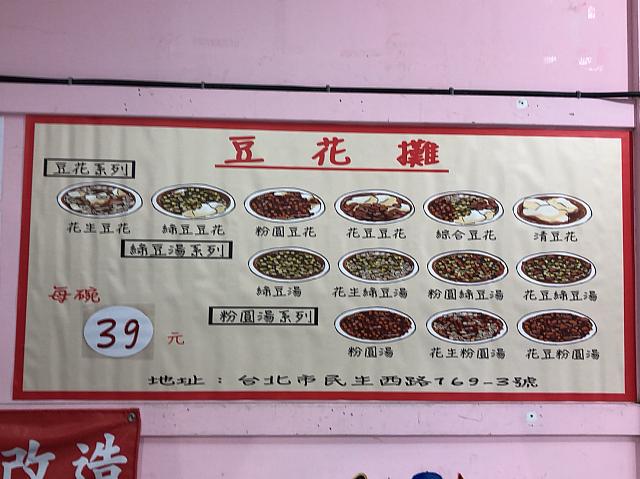 豆花攤
豆花系列
花生豆花 綠豆豆花 粉圓豆花 花豆豆花 綜合豆花 清豆花
綠豆湯系列
綠豆湯 花生綠豆湯 粉圓綠豆湯 花豆綠豆湯
每碗
39元
粉圓湯系列
粉圓湯 花生粉圓湯 花豆粉圓湯
地址：台北市民生西路169-3號
改造